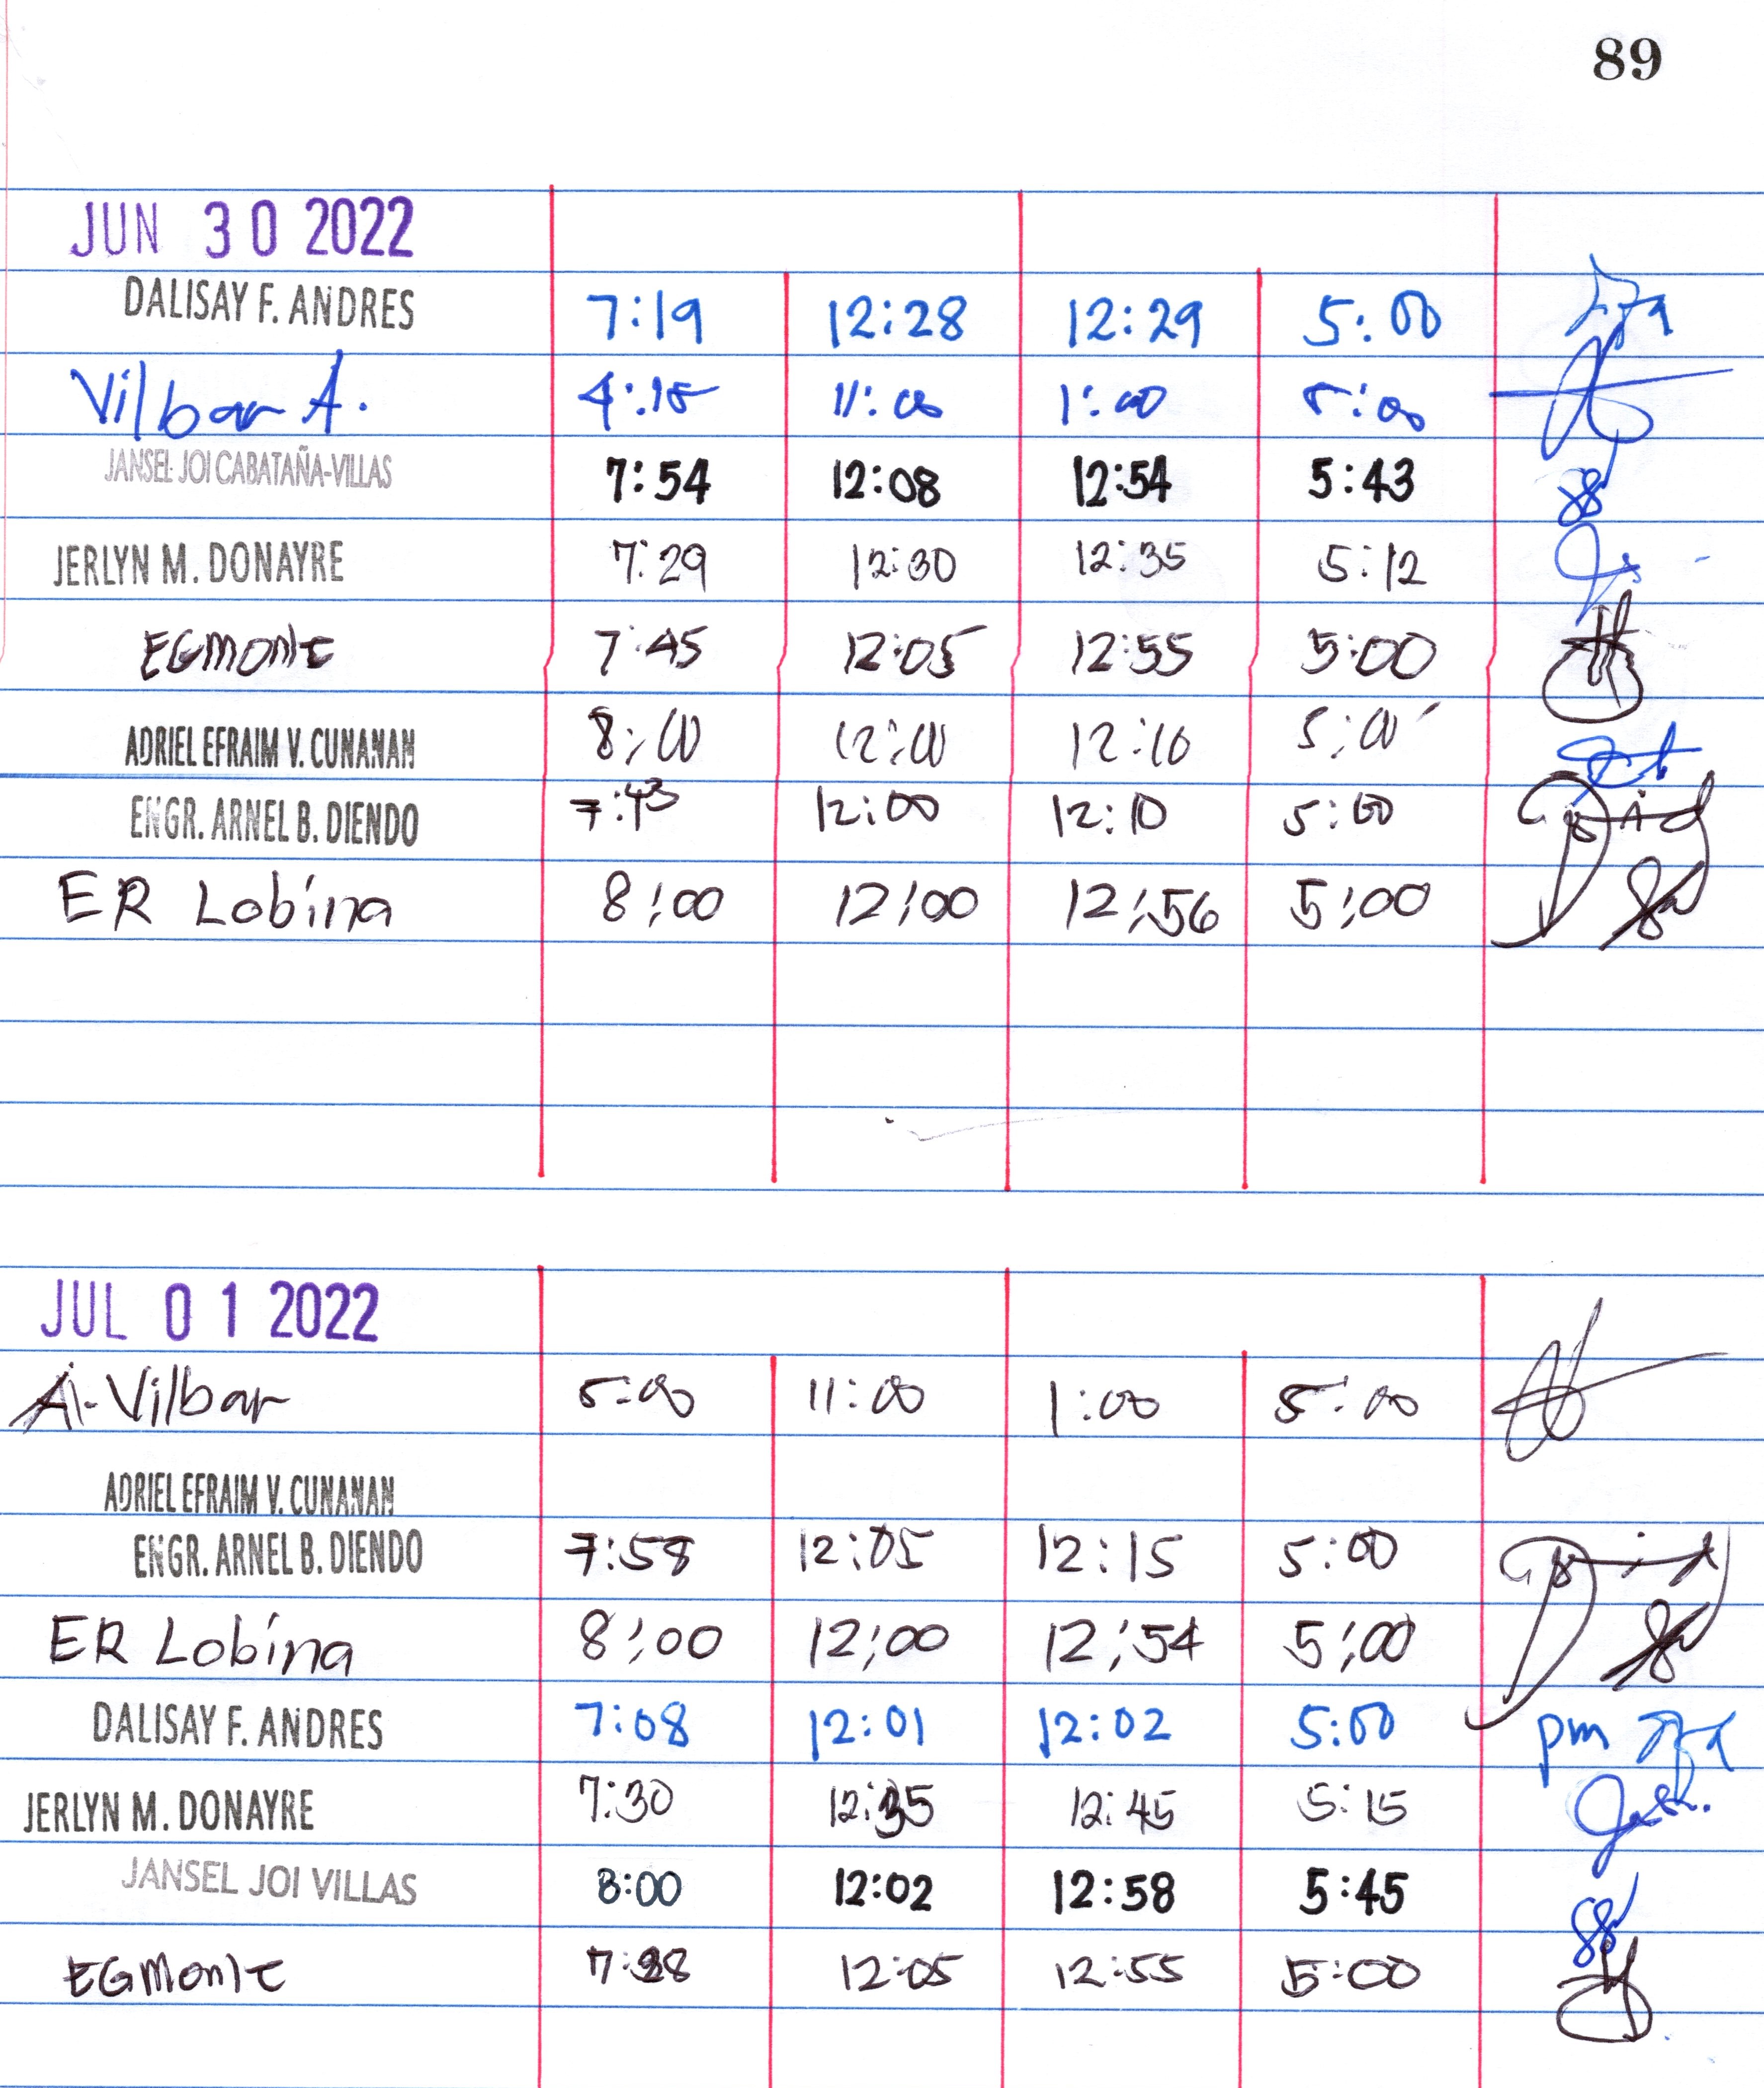 89
JUN 30 2022
DALISAY F. ANDRES 7:19 12:28 12:29 5:00
Vilbar A. 4:15 11:00 1:00 5:00
JANSEL JOI CABATAÑA-VILLAS 7:54 12:08 12:54 5:43
JERLYN M. DONAYRE 7:29 12:30 12:35 5:12
EGMonte 7:45 12:05 12:55 5:00
ADRIEL EFRAIM V. CUNANAN 8:00 12:00 12:10 5:00
ENGR. ARNEL B. DIENDO 7:43 12:00 12:10 5:00
ER Lobina 8:00 12:00 12:56 5:00
JUL 01 2022
A. Vilbar 5:00 11:00 1:00 5:00
ADRIEL EFRAIM V. CUNANAN
ENGR. ARNEL B. DIENDO 7:58 12:05 12:15 5:00
ER Lobina 8:00 12:00 12:54 5:00
DALISAY F. ANDRES 7:08 12:01 12:02 5:00 pm
JERLYN M. DONAYRE 7:30 12:35 12:45 5:15
JANSEL JOI VILLAS 8:00 12:02 12:58 5:45
EGMonte 12:05 12:55 5:00